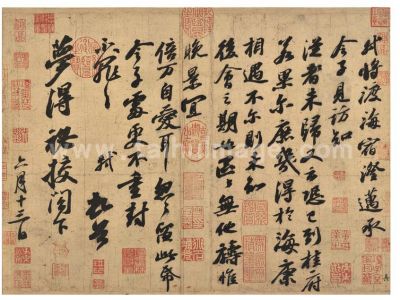 軾將渡海宿澄邁承
令子見訪知
從者未歸又云恐已到桂府
若果尔庶幾得於海康
相遇不尔則未知
後會之期也區區無他禱惟
晚景宜
倍万自愛耳匆匆留此帋
令子處更不重封
不罪不罪 軾頓首
夢得秘校閣下
六月十三日